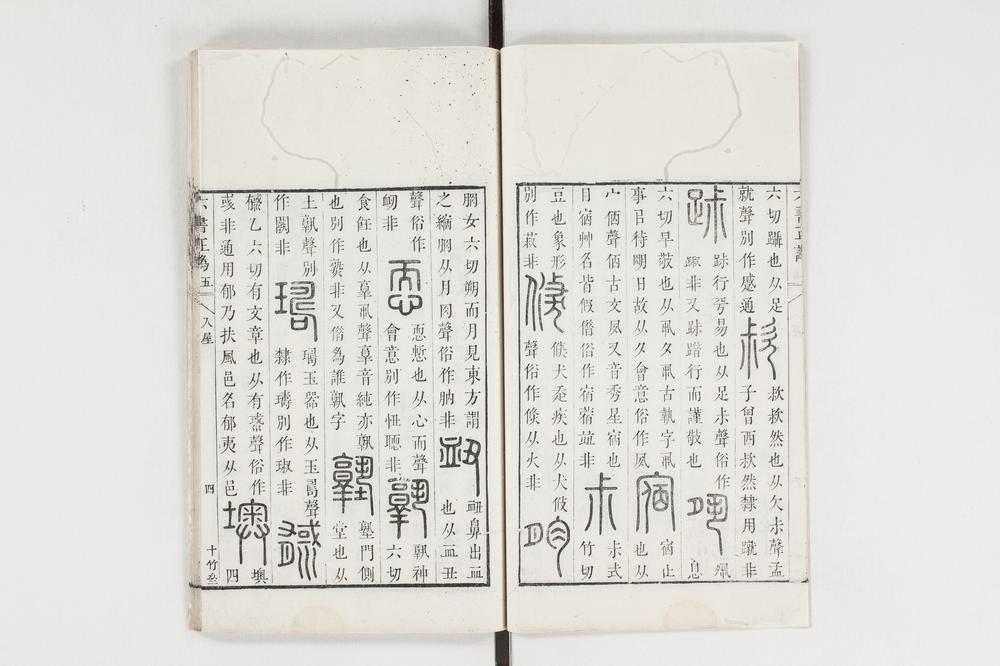 六書正譌
六切躡也从足　尗　㰗㰗然也从欠尗聲孟
就聲別作慼通　子曾西㰗然隷用蹴非
踧　踧行平易也从足尗聲俗作　夙
踧非又踧踖行而謹敬也　息
六切早敬也从丮夕丮古執字丮　宿　宿止
事𠂤待朙日故从夕會意俗作夙　也从
宀𠈇聲𠈇古文夙又音秀星宿也　尗　尗式
目宿艸名皆假僃俗作宿蓿竝非　竹切
豆也象形　倏　倏犬走疾也从犬攸
別作菽非　聲俗作倐从火非　朒
朒女六切朔而月見東方謂　衄鼻出血
之縮朒从月肉聲俗作肭非　也从血丑
聲俗作　恧　恧慙也从心而聲　孰　孰神
衂非　會意別作忸聰非　六切
食飪也从𦎫丮聲𦎫音純亦孰　塾　塾門側
也別作𩱧非又僃為誰孰字　堂也从
土孰聲別　璹　璹玉器也从玉𠷎聲
作閮非　隸作璹別作琡非
䤋乙六切有文章也从有惑聲俗作　墺　墺
彧非通用郁乃扶風邑名郁夷从邑　四
六書正譌五　入屋　四　十竹斋